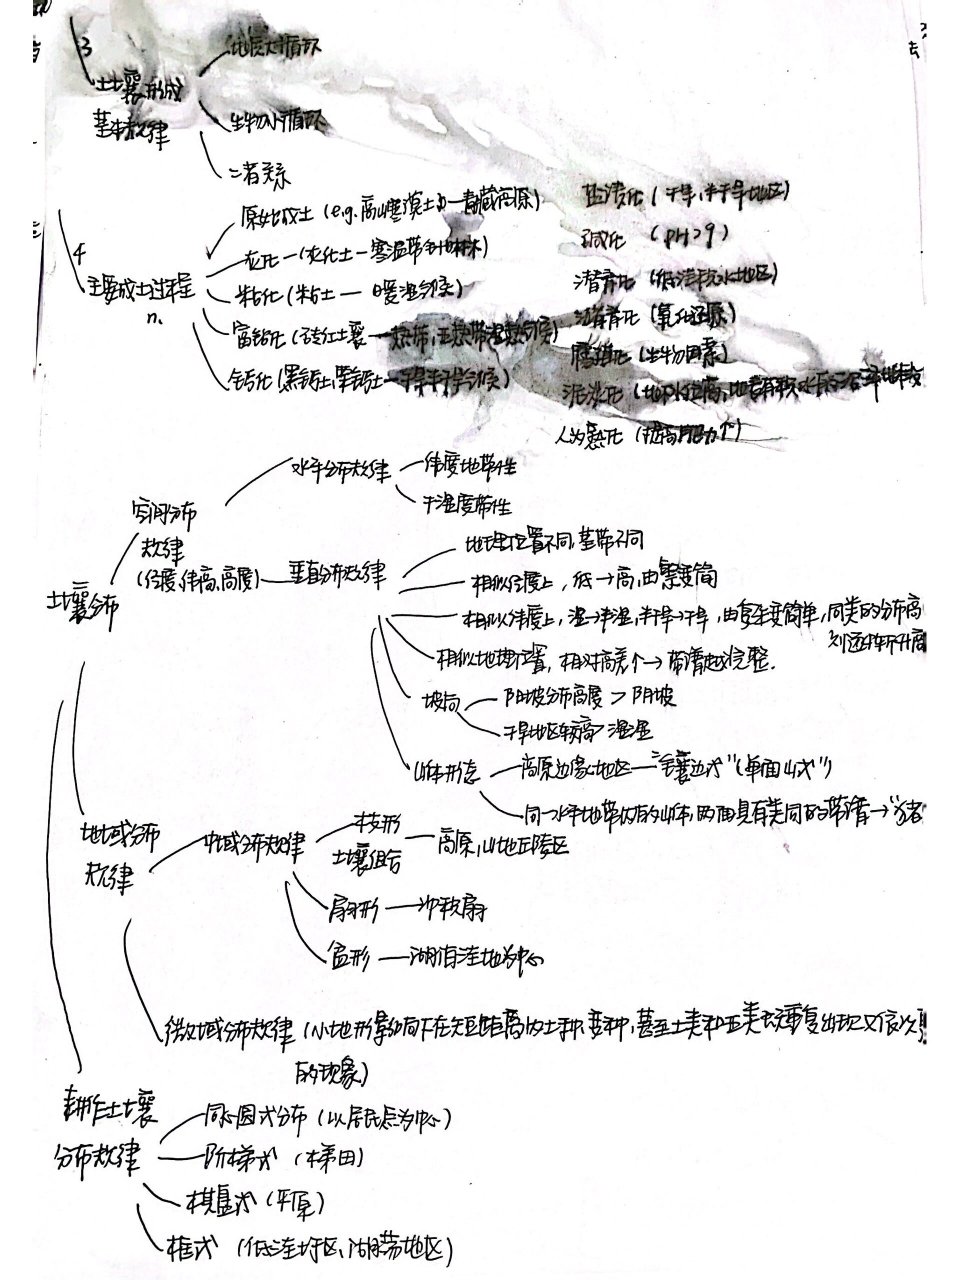 3
土壤形成
基本规律
地质大循环
生物小循环
二者关系
4
主要成土过程
原始成土 (e.g. 高山寒漠土 — 青藏高原)
灰化 — (灰化土 — 寒温带针叶林)
粘化 (粘土 — 暖湿气候)
富铝化 (砖红土壤 — 热带,亚热带湿热气候)
钙化 (黑钙土,栗钙土 — 干旱半干旱气候)
盐渍化 (干旱,半干旱地区)
碱化 (pH>9)
潜育化 (低洼积水地区)
潴育化 (氧化还原)
腐殖化 (生物因素)
泥炭化 (地下水位高,地表有积水
人为熟化 (提高肥力↑)
土壤分布
空间分布
规律
(经度,纬高,高度)
水平分布规律
纬度地带性
干湿度带性
垂直分布规律
地理位置不同,基带不同
相似经度上, 低→高,由繁变简
相似纬度上, 湿→半湿,半干旱→干旱, 由复杂变简单, 同类的分布高
相似地理位置, 相对高差↑→带谱越完整.
坡向
阳坡分布高度 > 阴坡
干旱地区较高 > 湿湿
山体形态
高原边缘地区 — "土壤边式" (单面山式")
同一水平地带内的山体,两面具有类同的带谱→"
地域分布
规律
中域分布规律
枝形
土壤组合
高原,山地丘陵区
扇形 — 冲积扇
盆形 — 湖泊洼地为中心
微域分布规律 (小地形影响下在短距离内土种,变种,甚至土类和亚类,既重复出现又依次
的现象)
耕作土壤
分布规律
同心圆式分布 (以居民点为中心)
阶梯式 (梯田)
棋盘式 (平原)
框式 (低洼圩区,湖荡地区)